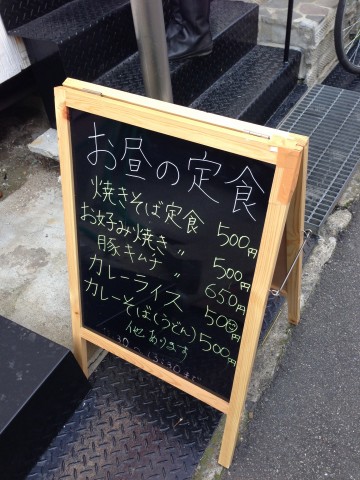 お昼の定食
焼きそば定食 500円
お好み焼き 〃 500円
豚キムチ 〃 650円
カレーライス 500円
カレーそば(うどん) 500円
他あります